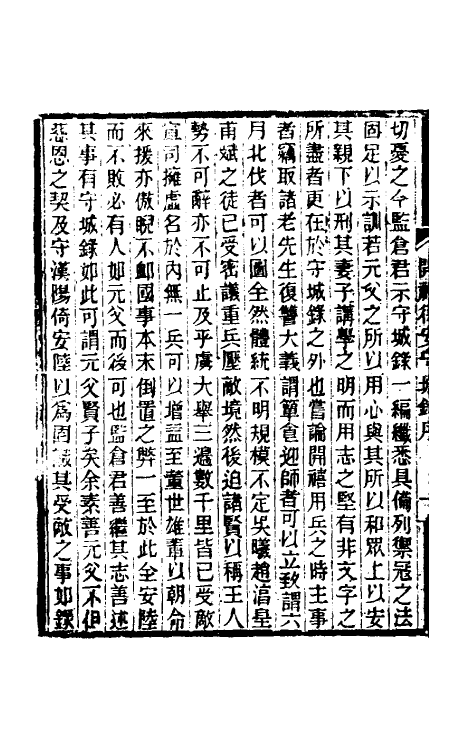 切憂之今監倉君示守城錄一編纖悉具備列禦冦之法
固足以示訓若元父之所以用心與其所以和眾上以安
其親下以刑其妻子講學之明而用志之堅有非文字之
所盡者更在於守城錄之外也嘗論開禧用兵之時主事
者竊取諸老先生復讐大義謂簞食迎師者可以立致謂六
月北伐者可以圖全然體統不明規模不定吳曦趙淳皇
甫斌之徒已受密議重兵壓敵境然後迫諸賢以稱王人
勢不可辭亦不可止及乎虜大舉三邊數千里皆已受敵
宣司擁虛名於內無一兵可以增益至董世雄輩以朝命
來援亦傲睨不䘏國事本末倒置之弊一至於此全安陸
而不敗必有人如元父而後可也監倉君善繼其志善述
其事有守城錄如此可謂元父賢子矣余素善元父不但
恩之契及守漢陽倚安陸以為固 其受敵之事如錄
開禧德安守城錄序